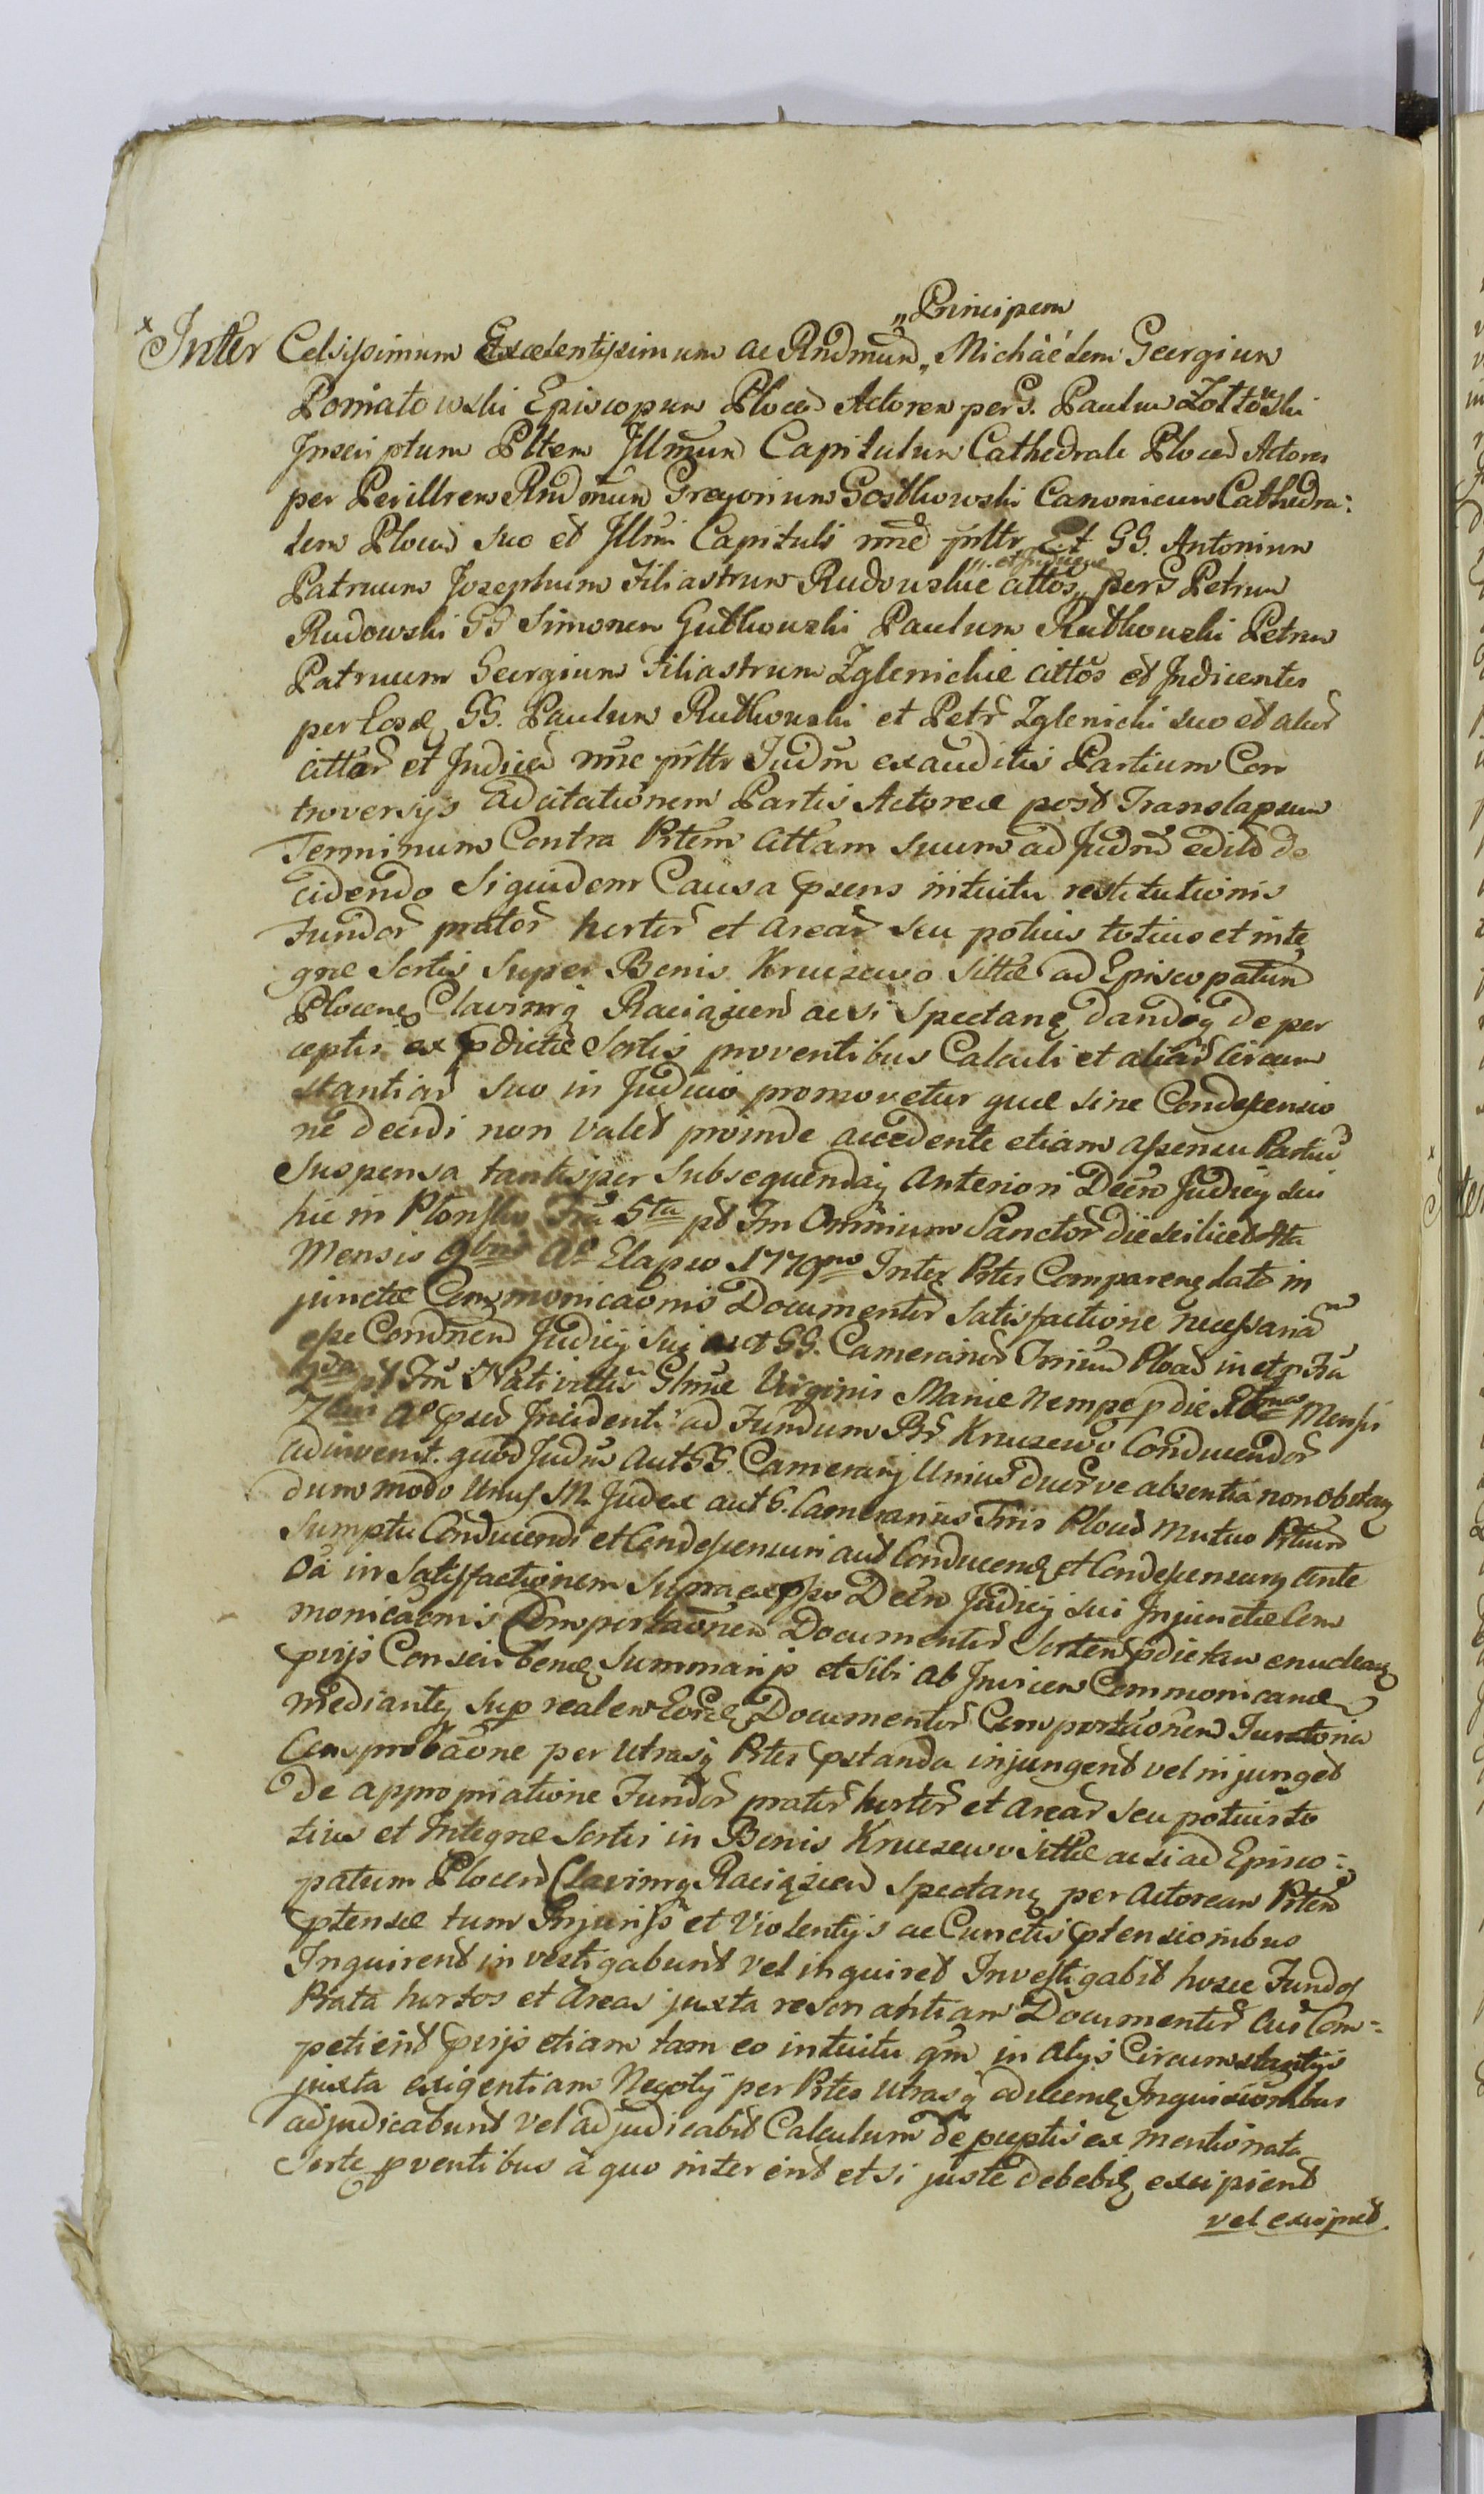 „Principem
Inter Celsissimum Excelentissimum ac Rndmum „ Michäélem Georgium
Poniatowski Episcopum Plocen Actorem per G. Paulum Zołtowski
Inscriptum Pltem Illmum Capitulum Cathedrale Plocen Actores
per Perillrem Rndmum Gregorium Gostkowski Canonicum Cathedra:
lem Plocen suo et Illmi Capituli nne prttr Et GG. Antonium
„ et Indicen
Patruum Josephum Filiastrum Rudowskie cittos „ per G Petrum
Rudowski GG Simonem Gutkowski Paulum Rutkowski Petrum
Patruum Georgium Filiastrum Zglenickie cittos et Indicentes
per Eosd GG. Paulum Rutkowski et Petr Zglenicki suo et alior
cittor et Indicen nne prttr Judm exauditis Partium Con
troversys ad citationem Partis Actoreæ post Translapsum
Terminum Contra Ptem Cittam suum ad Judm edito de
cidendo Siquidem Causa psens intuitu restitutionis
Fundor prator hortor et arear seu potius totius et inte
græ Sortis super Bonis Kruszewo sittæ ad Episcopatum
Plocens Clavimq Raciązen ac si spectanę dandoq de per
ceptis ex pdictæ Sortis proventibus Calculi et aliar Circum
stantiar suo in Judicio promovetur quæ sine Condescensio
ne decidi non valet proinde accedente etiam assensu Partiu
Suspensa tantisper subsequendaq anteriori Decro Judicy sui
hic in Plonsko Fria 5ta pt Fm Omnium Sanctor die scilicet 4ta
Mensis 9bris Ao Elapso 1779no Inter Ptes Comparenę lato in
junctæ Commonicaonis Documentor satisfactione necessaria
esse Condnem Judicy sui aut GG. Camerarior Trium Plocen in et p Fria
2da pt Fm Nativittis Glmæ Virginis Mariæ nempe p die Mensis
7bris Ao psen Incidenti ad Fundum Br Kruszewo Conducendor
adinvenit. quod Judm Aut GG. Camerarij Unius duor ve absentia non obstan
dummodo Unus M. Judex aut G. Camerarius Tris Plocen mutuo Ptium
Sumptu Conducendi et Condescensuri aut Conducend et Condescensurq ante
oa in satisfactionem supra expsso Decro Judicij sui Injunctæ Com
monicaonis Comportaonem Documentor Sortem pdictam enucleanę
prijs Conscribend Summarijs et sibi ab Invicem Commonicand
mediantę sup realem Eord Documentor Comportaonem Juratoria
Comprobaone per Utrasq Ptes pstanda injungent vel injunget
De appropriatione Fundor prator hortor et arear seu potius to
tius et Integræ Sortis in Bonis Kruszewo sittæ ac si ad Episco:
patum Plocen Clavimq Raciązen spectanę per Actoream Ptem
ptensæ tum Injurijs et Violentijs ac Cunctis ptensionibus
Inquirent investigabunt vel inquiret Investigabit hosce Fundos
Prata hortos et Areas juxta resonantiam Documentor cui Com:
petierit prijs etiam tam eo intuitu qm in alijs Circumstantijs
juxta exigentiam Negoty per Ptes Utrasq aducend Inquisionibus
adjudicabunt vel adjudicabit Calculum de pceptis ex mentionata
Sorte pventibus à quo inter erit et si juste debebit excipient
vel excipiet